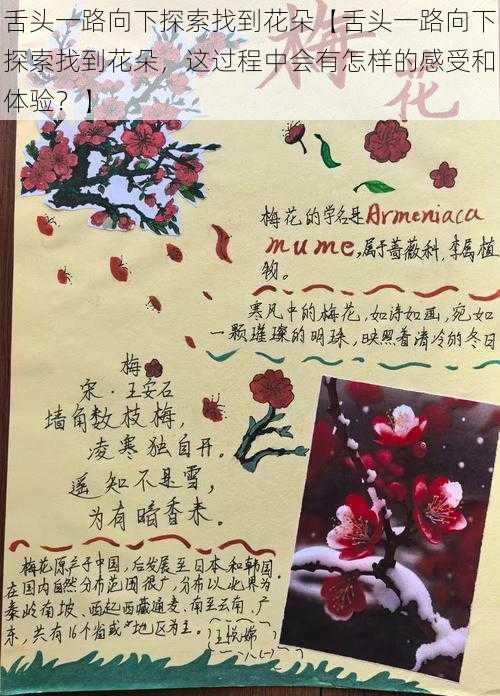 舌头一路向下探索找到花朵【舌头一路向下
探索找到花朵，这过程中会有怎样的感受和
体验？】
梅花
梅花的学名是Armeniaca
mume，属于蔷薇科，李属植
物。
寒风中的梅花，如诗如画，宛如
一颗璀璨的明珠，映照着清冷的冬日
梅
宋·王安石
墙角数枝梅，
凌寒独自开。
遥知不是雪，
为有暗香来。
梅花原产于中国，后发展至日本和韩国
在国内自然分布范围很广，分布以北界为
秦岭南坡、西起西藏通麦，南至云南、广
东，共有16个省或地区为主。